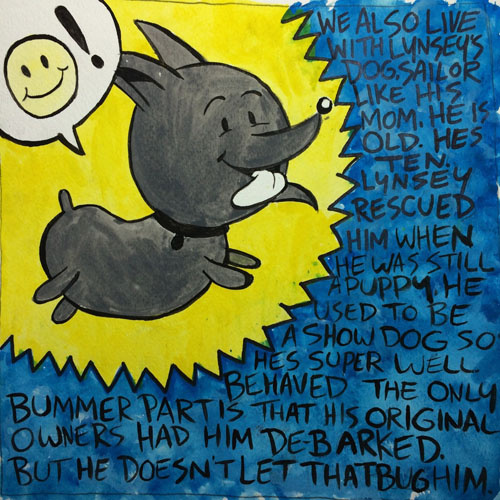 !
WE ALSO LIVE
WITH LYNSEY'S
DOG, SAILOR
LIKE HIS
MOM. HE IS
OLD. HES
TEN.
LYNSEY
RESCUED
HIM WHEN
HE WAS STILL
A PUPPY. HE
USED TO BE
A SHOW DOG SO
HES SUPER WELL
BEHAVED THE ONLY
BUMMER PART IS THAT HIS ORIGINAL
OWNERS HAD HIM DEBARKED.
BUT HE DOESN'T LET THAT BUG HIM.